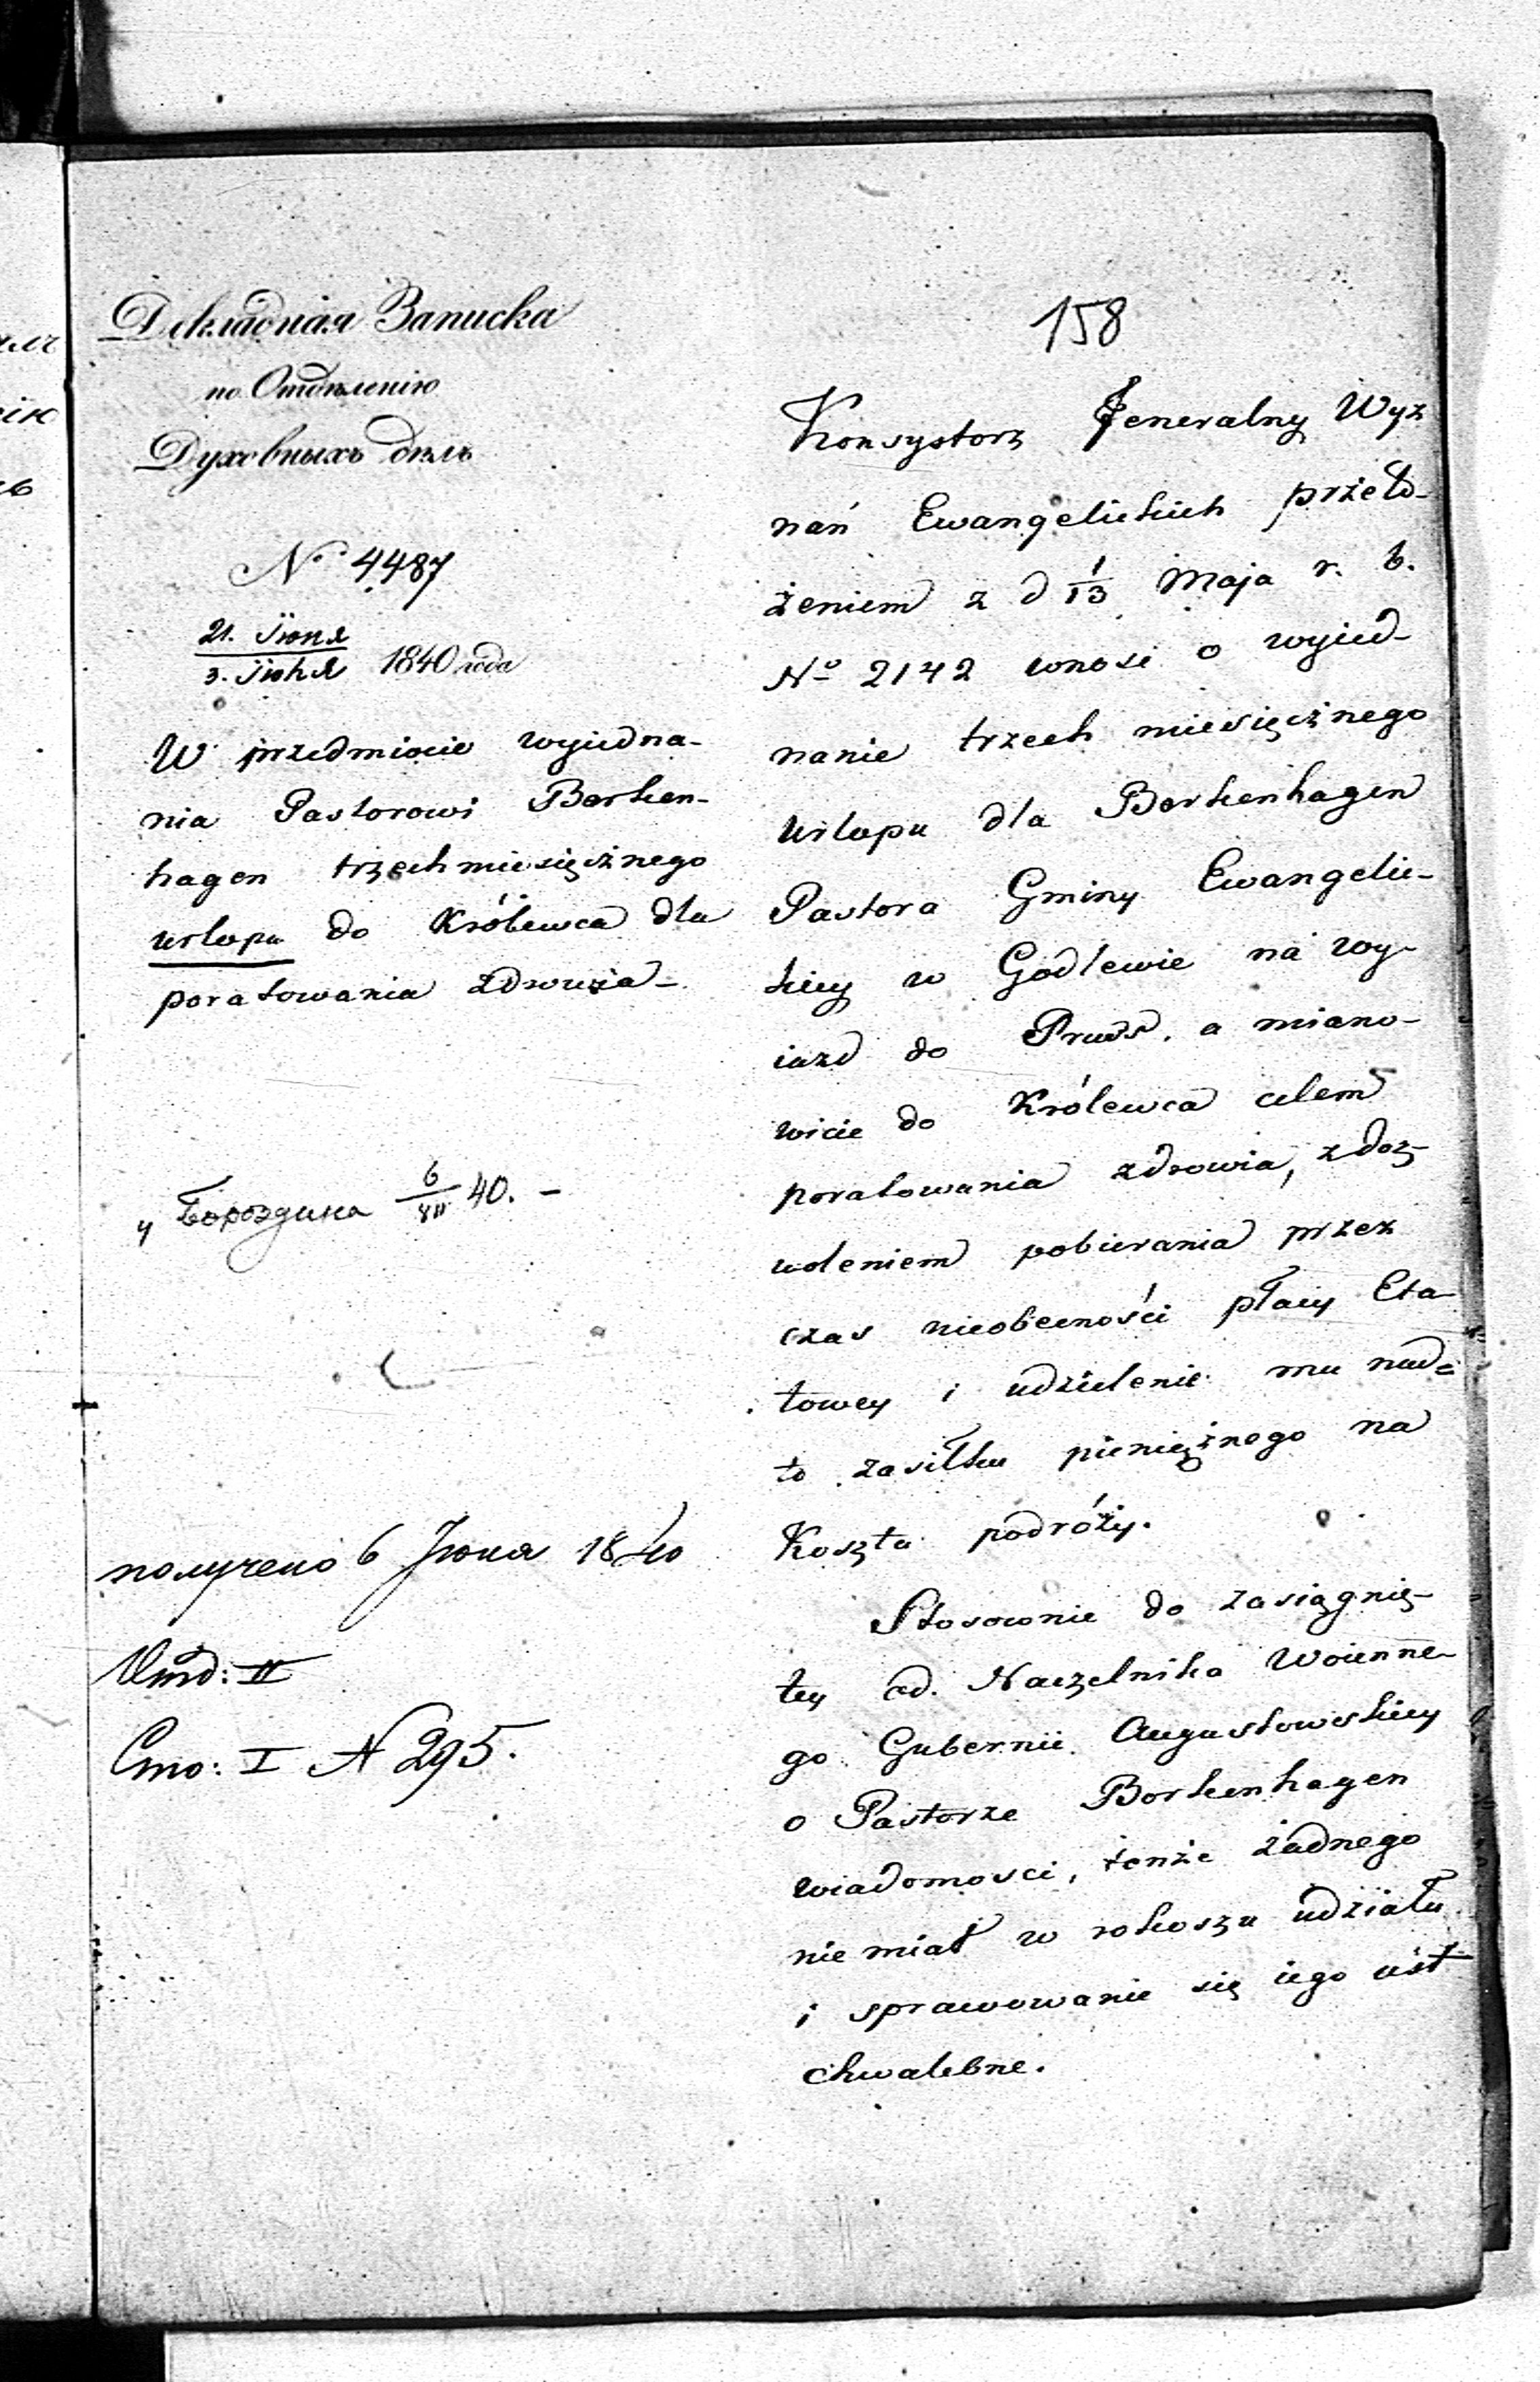 Докладная Записка
по Отдѣленію
Духовныхъ дѣлъ
№ 4487
21. Іюня
3. Іюля 1840 года
W przedmiocie wyiedna-
nia Pastorowi Borken-
hagen trzechmiesięcznego
urlopu do Królewca dla
poratowania zdrowia -
у Бороздина 6/VII 40. -
получено 6 Іюля 1840
Отд: II
Сто: I N 295.
158
Konsystorz Jeneralny Wyz
nań Ewangelickich przeło-
żeniem z d 1/13 Maja r. b.
No 2142 wnosi o wyied-
nanie trzech miesięcznego
Urlopu dla Borkenhagen
Pastora Gminy Ewangelic-
kiey w Godlewie na wy-
iazd do Pruss, a miano-
wicie do Królewca celem
poratowania zdrowia, z doz-
woleniem pobierania przez
czas nieobecności płacy Eta-
towey i udzielenie mu nad-
to zasiłku pieniężnego na
Koszta podróży.
Stosownie do zasiągnię-
tey od Naczelnika Woienne-
go Gubernii Augustowskiey
o Pastorze Borkenhagen
wiadomosci, tenże żadnego
nie miał w rokoszu udziału
i sprawowanie się iego iest
chwalebne.